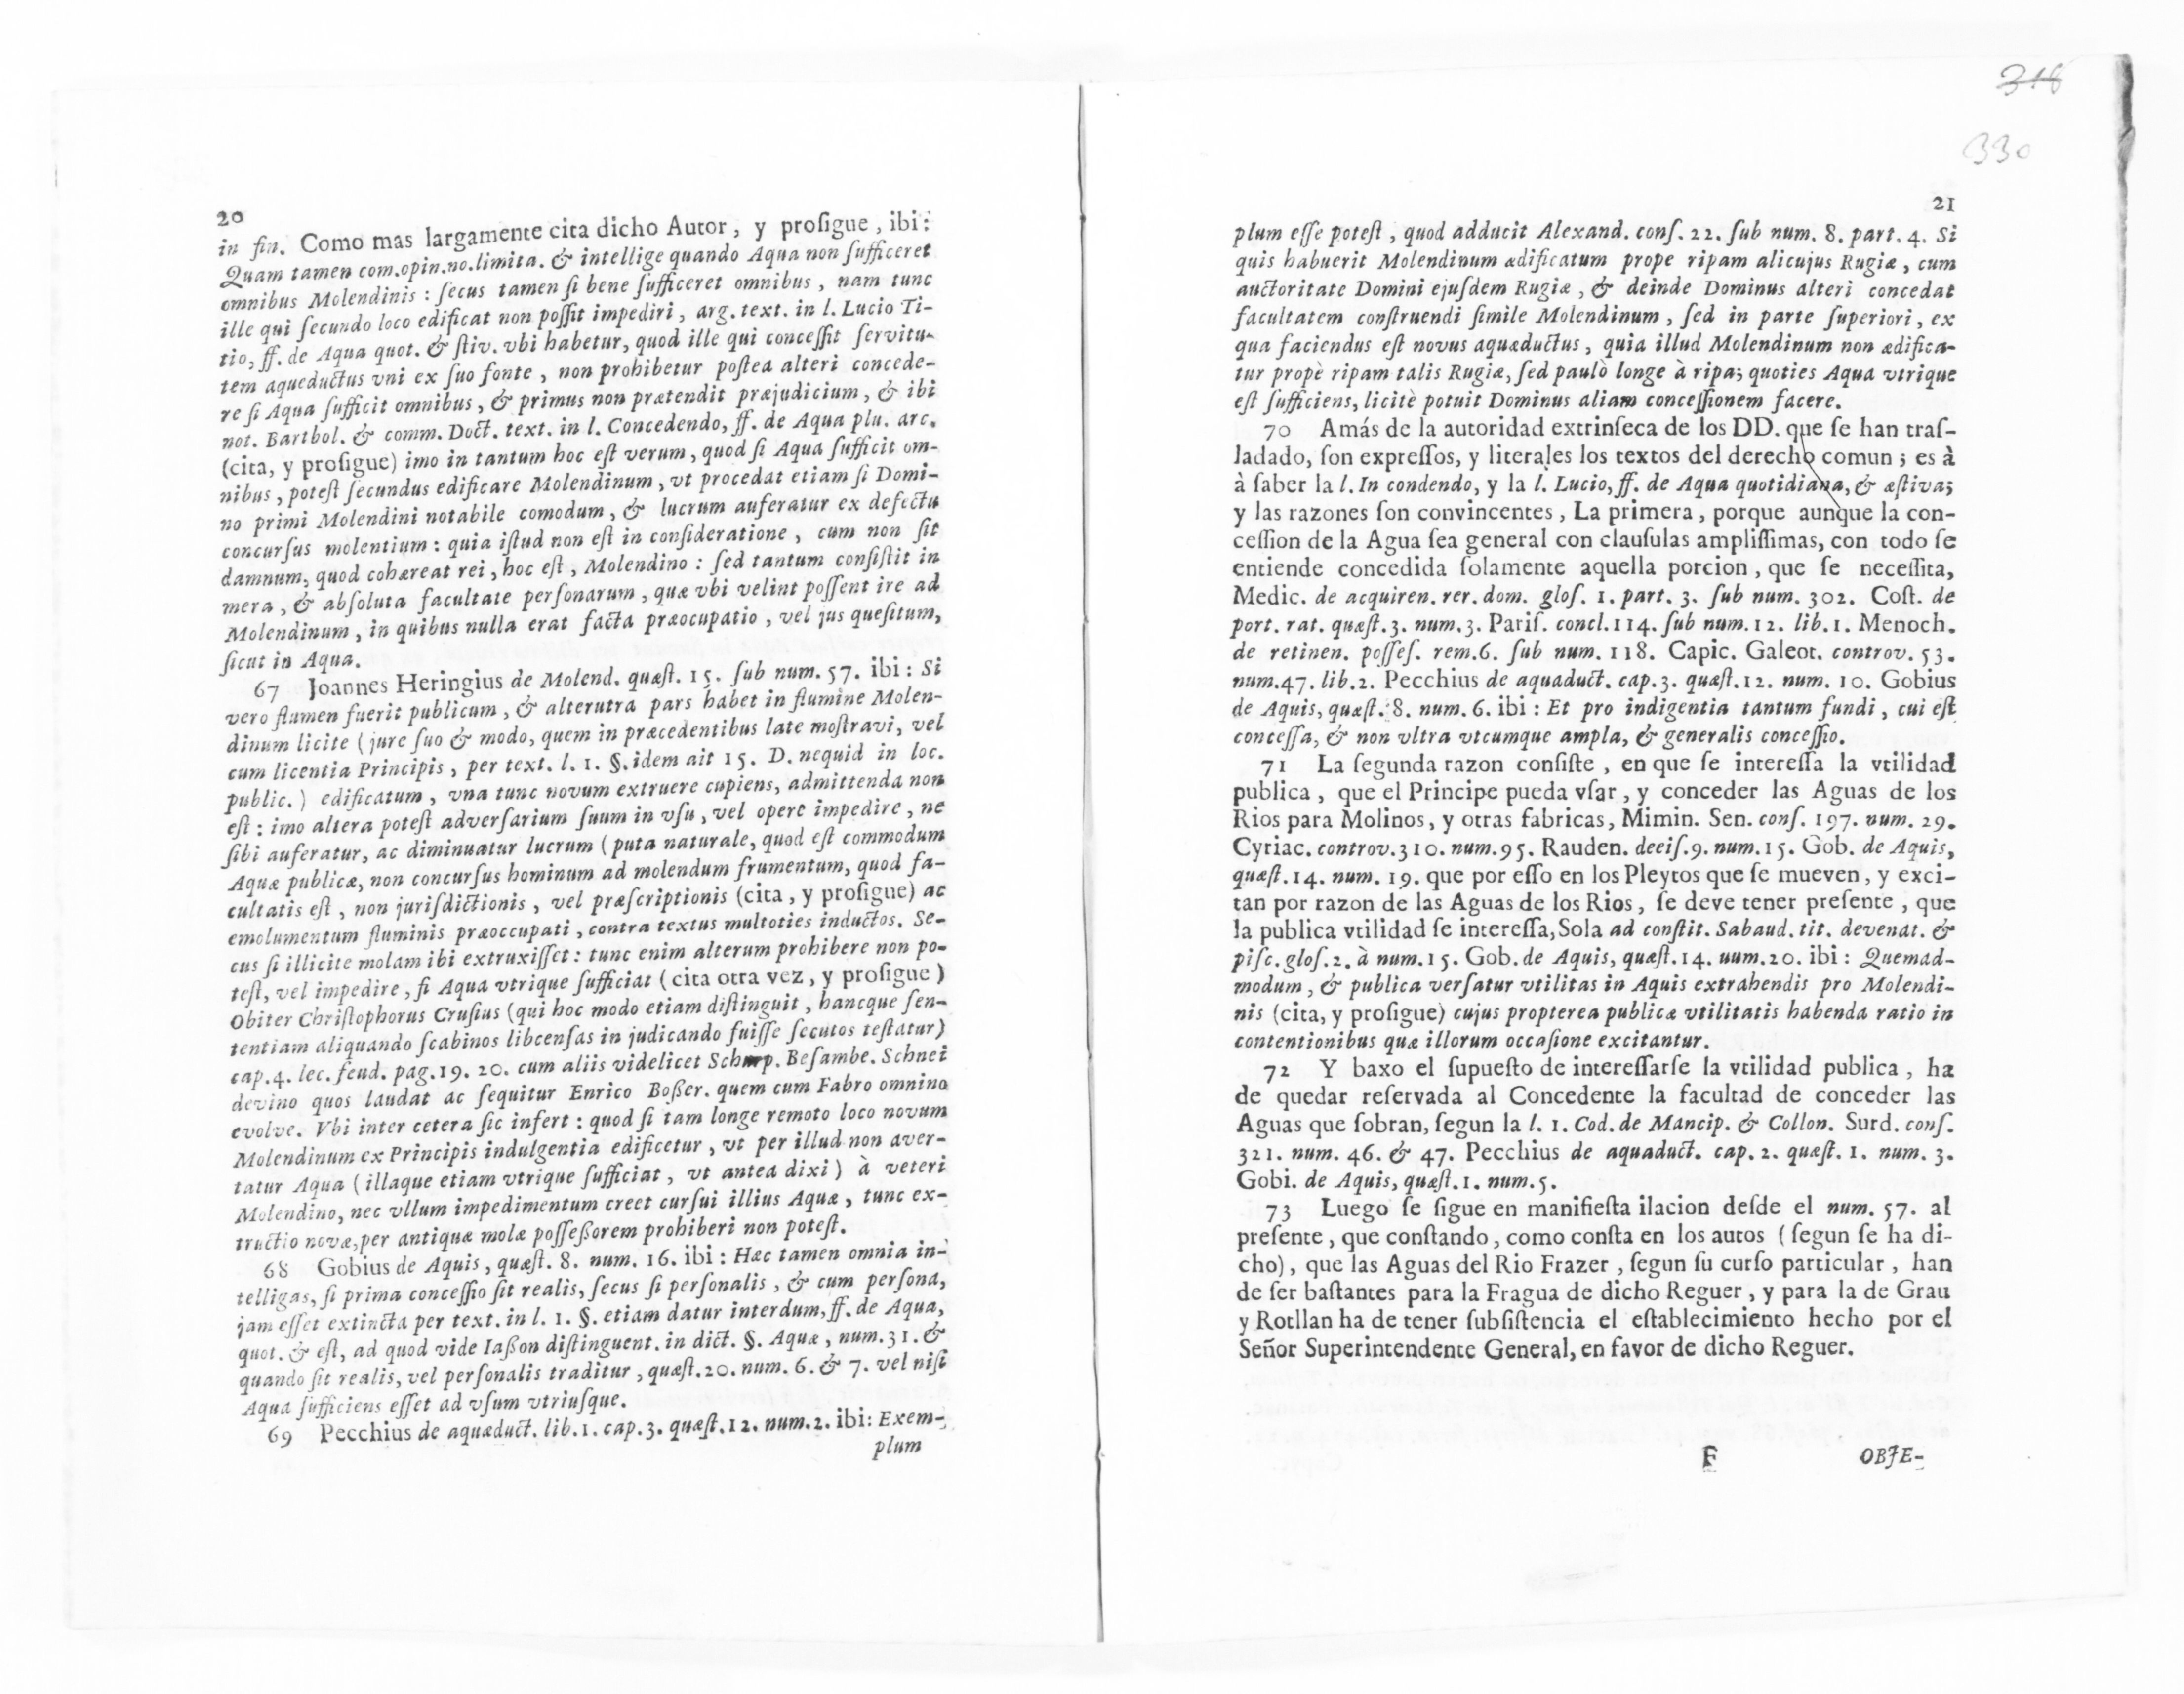 20
in fin. Como mas largamente cita dicho Autor, y prosigue, ibi:
Quam tamen com.opin.no.limita. & intellige quando Aqua non sufficeret
omnibus Molendinis : secus tamen si bene sufficeret omnibus, nam tunc
ille qui secundo loco edificat non possit impediri, arg. text. in l. Lucio Ti-
tio, ff. de Aqua quot. & stiv. vbi habetur, quod ille qui concessit servitu-
tem aqueductus vni ex suo fonte, non prohibetur postea alteri concede-
re si Aqua sufficit omnibus, & primus non prætendit præjudicium, & ibi
not. Barthol. & comm. Doct. text. in l. Concedendo, ff. de Aqua plu. arc.
(cita, y prosigue) imo in tantum hoc est verum, quod si Aqua sufficit om-
nibus, potest secundus edificare Molendinum, vt procedat etiam si Domi-
no primi Molendini notabile comodum, & lucrum auferatur ex defectu
concursus molentium: quia istud non est in consideratione, cum non sit
damnum, quod cohæreat rei, hoc est, Molendino: sed tantum consistit in
mera, & absoluta facultate personarum, quæ vbi velint possent ire ad
Molendinum, in quibus nulla erat facta præocupatio, vel jus quesitum,
sicut in Aqua.
67 Joannes Heringius de Molend. quæst. 15. sub num. 57. ibi: Si
vero flumen fuerit publicum, & alterutra pars habet in flumine Molen-
dinum licite (jure suo & modo, quem in præcedentibus late mostravi, vel
cum licentia Principis, per text. l. 1. §. idem ait 15. D. nequid in loc.
public.) edificatum, vna tunc novum extruere cupiens, admittenda non
est: imo altera potest adversarium suum in vsu, vel opere impedire, ne
sibi auferatur, ac diminuatur lucrum (puta naturale, quod est commodum
Aquæ publicæ, non concursus hominum ad molendum frumentum, quod fa-
cultatis est, non jurisdictionis, vel præscriptionis (cita, y prosigue) ac
emolumentum fluminis præoccupati, contra textus multoties inductos. Se-
cus si illicite molam ibi extruxisset: tunc enim alterum prohibere non po-
test, vel impedire, si Aqua vtrique sufficiat (cita otra vez, y prosigue)
Obiter Christophorus Crusius (qui hoc modo etiam distinguit, hancque sen-
tentiam aliquando scabinos libcensas in judicando fuisse secutos testatur)
cap.4. lec. feud. pag.19. 20. cum aliis videlicet Besambe. Schnei
devino quos laudat ac sequitur Enrico Boßer. quem cum Fabro omnino
evolve. Vbi inter cetera sic infert: quod si tam longe remoto loco novum
Molendinum ex Principis indulgentia edificetur, vt per illud non aver-
tatur Aqua (illaque etiam vtrique sufficiat, vt antea dixi) à veteri
Molendino, nec vllum impedimentum creet cursui illius Aquæ, tunc ex-
tructio novæ, per antiquæ molæ posseßorem prohiberi non potest.
68 Gobius de Aquis, quæst. 8. num. 16. ibi: Hæc tamen omnia in-
telligas, si prima concessio sit realis, secus si personalis, & cum persona,
jam esset extincta per text. in l. 1. §. etiam datur interdum, ff. de Aqua,
quot. & est, ad quod vide Iaßon distinguent. in dict. §. Aquæ, num. 31. &
quando sit realis, vel personalis traditur, quæst.20. num. 6. & 7. vel nisi
Aqua sufficiens esset ad vsum vtriusque.
69 Pecchius de aquæduct. lib.1. cap.3. quæst.12. num.2. ibi: Exem-
plum
316
330
21
plum esse potest, quod adducit Alexand. cons. 22. sub num. 8. part. 4. Si
quis habuerit Molendinum ædificatum prope ripam alicujus Rugiæ, cum
auctoritate Domini ejusdem Rugiæ, & deinde Dominus alteri concedat
facultatem construendi simile Molendinum, sed in parte superiori, ex
qua faciendus est novus aquæductus, quia illud Molendinum non ædifica-
tur propè ripam talis Rugiæ, sed paulò longe à ripa; quoties Aqua vtrique
est sufficiens, licitè potuit Dominus aliam concessionem facere.
70 Amás de la autoridad extrinseca de los DD. que se han tras-
ladado, son expressos, y literales los textos del derecho comun; es à
à saber la l. In condendo, y la l. Lucio, ff. de Aqua quotidiana, & æstiva;
y las razones son convincentes, La primera, porque aunque la con-
cession de la Agua sea general con clausulas amplissimas, con todo se
entiende concedida solamente aquella porcion, que se necessita,
Medic. de acquiren. rer. dom. glos. 1. part. 3. sub num. 302. Cost. de
port. rat. quæst. 3. num. 3. Paris. concl.114. sub num.12. lib.1. Menoch.
de retinen. posses. rem.6. sub num. 118. Capic. Galeot. controv. 53.
num.47. lib.2. Pecchius de aquæduct. cap.3. quæst.12. num. 10. Gobius
de Aquis, quæst. 8. num. 6. ibi: Et pro indigentia tantum fundi, cui est
concessa, & non vltra vtcumque ampla, & generalis concessio.
71 La segunda razon consiste, en que se interessa la vtilidad
publica, que el Principe pueda vsar, y conceder las Aguas de los
Rios para Molinos, y otras fabricas, Mimin. Sen. cons. 197. num. 29.
Cyriac. controv.310. num.95. Rauden. deeis.9. num.15. Gob. de Aquis,
quæst.14. num. 19. que por esso en los Pleytos que se mueven, y exci-
tan por razon de las Aguas de los Rios, se deve tener presente, que
la publica vtilidad se interessa, Sola ad constit. Sabaud. tit. devenat. &
pisc. glos. 2. à num. 15. Gob. de Aquis, quæst. 14. uum. 20. ibi: Quemad-
modum, & publica versatur vtilitas in Aquis extrahendis pro Molendi-
nis (cita, y prosigue) cujus propterea publicæ vtilitatis habenda ratio in
contentionibus quæ illorum occasione excitantur.
72 Y baxo el supuesto de interessarse la vtilidad publica, ha
de quedar reservada al Concedente la facultad de conceder las
Aguas que sobran, segun la l. 1. Cod. de Mancip. & Collon. Surd. cons.
321. num. 46. & 47. Pecchius de aquæduct. cap. 2. quæst. 1. num. 3.
Gobi. de Aquis, quæst. 1. num. 5.
73 Luego se sigue en manifiesta ilacion desde el num. 57. al
presente, que constando, como consta en los autos (segun se ha di-
cho), que las Aguas del Rio Frazer, segun su curso particular, han
de ser bastantes para la Fragua de dicho Reguer, y para la de Grau
y Rotllan ha de tener subsistencia el establecimiento hecho por el
Señor Superintendente General, en favor de dicho Reguer.
F OBJE-